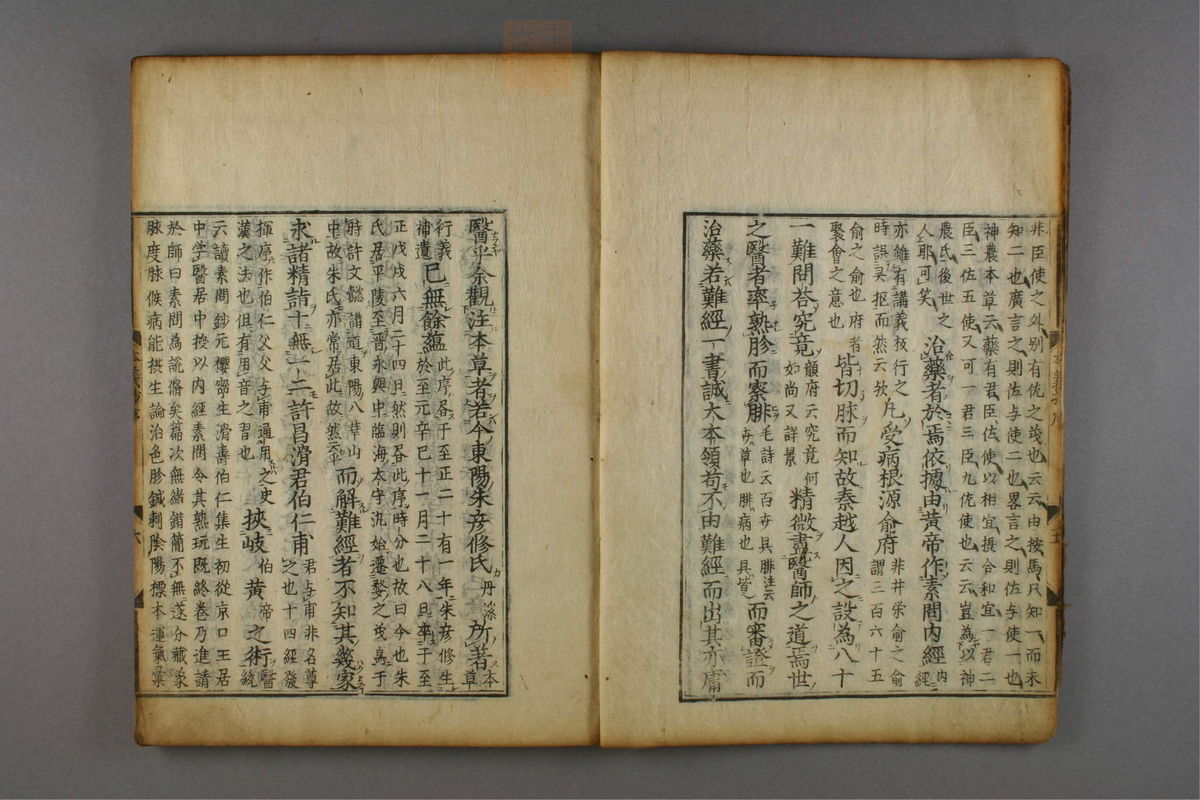 非臣使之外別有佐之茂也云云由按馬只知一而未
知二也廣言之則佐与使二也畧言之則佐与使一也
神農本草云藥有君臣佐使以相宜摂合和宜一君二
臣三佐五使又可一君三臣九佐使也云云豈為以神
農氏後世之人耶可笑治藥者於焉依據由黃帝作素問內經內經
亦雖有講義板行之時誤灵抠而然云欤凡受病根源俞府非井荣俞之俞謂三百六十五
俞之俞也府者聚會之意也皆切脉而知故秦越人因之設為八十
一難問荅究竟顧府云究竟何如尚又詳景精微盡醫師之道焉世
之醫者率熟䏔而察腓毛詩云百卉具腓注云卉草也腓病也具皆而審證而
治藥若難經一書誠大本領苟不由難經而出其亦庸
醫乎余觀注本草者若今東陽朱彦修氏丹溪所著本草
衍義補遺已無餘蘊此序畧于至正二十有一年朱彦修生於至元辛巳十一月二十八日卒于至
正戊戌六月二十四日然則畧此序時分也故曰今也朱
氏居平陵至晋永興中臨海太守汎始遷婺之茂烏于
時許文懿講道東陽八華山中故朱氏亦常居此故然云乎而解難經者不知其幾家
求諸精詣十無一二許昌滑君伯仁甫君与甫非名尊之也十四經發
揮序作伯仁父父与甫通用之史漢之法也但有用音之習也挾岐伯黃帝之術醫統
云讀素問鈔元攖寧生滑壽伯仁集生初從京口王居
中学醫居中授以内經素問令其熟玩既終卷乃進請
於師曰素問為説偹矣篇次無緒錯簡不無遂分藏象
脉度脉候病能摂生論治色胗鍼刺陰陽標本運氣彙